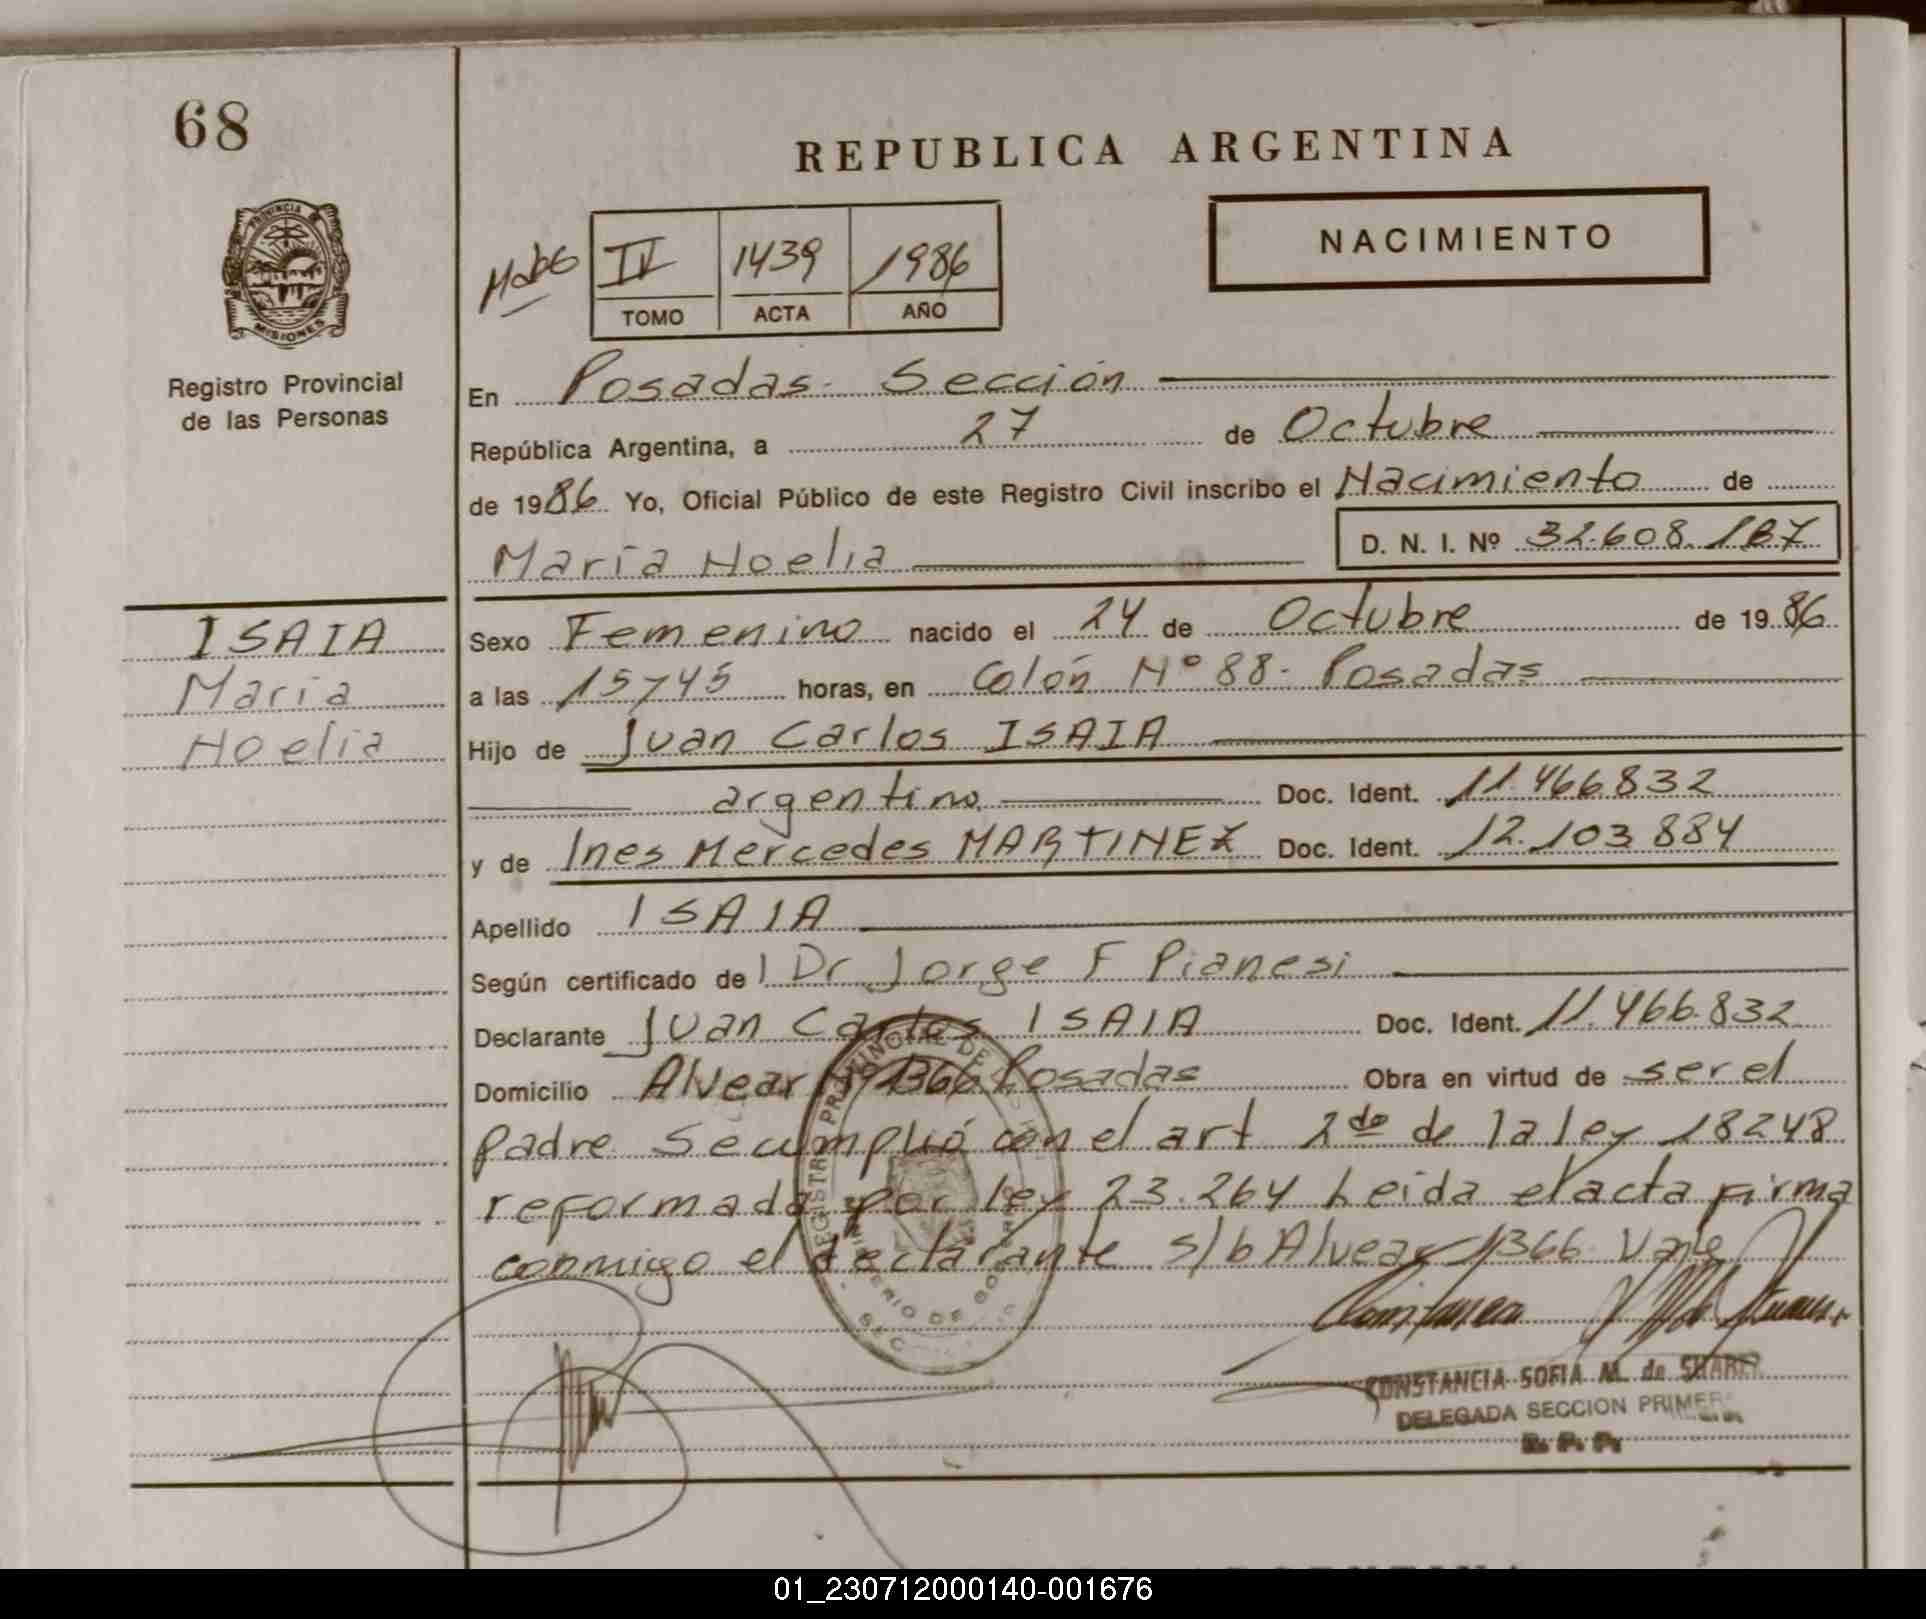 68
REPUBLICA ARGENTINA
NACIMIENTO
IV 1439 1986
TOMO ACTA AÑO
PROVINCIA DE
MISIONES
Registro Provincial
de las Personas
En Posadas- Sección
República Argentina, a 27 de Octubre
de 1986 Yo, Oficial Público de este Registro Civil inscribo el Nacimiento de
María Noelia
D. N. I. Nº 32.608.187
ISAIA
María
Noelia
Sexo Femenino nacido el 24 de Octubre de 1986
a las 15y45 horas, en Colón Nº 88- Posadas
Hijo de Juan Carlos ISAIA
argentino Doc. Ident. 11.466.832
y de Ines Mercedes MARTINEZ Doc. Ident. 12.103.884
Apellido ISAIA
Según certificado del Dr Jorge F Pianesi
Declarante Juan Carlos ISAIA Doc. Ident. 11.466.832
Domicilio Alvear Nº 1366 Posadas Obra en virtud de ser el
padre Se cumplió con el art 2do de la ley 18248
reformada por ley 23.264 Leida el acta firma
conmigo el declarante s/b Alvear 1366 Vale
CONSTANCIA SOFIA M. de
DELEGADA SECCION PRIMERA
R. P. P.
01_230712000140-001676